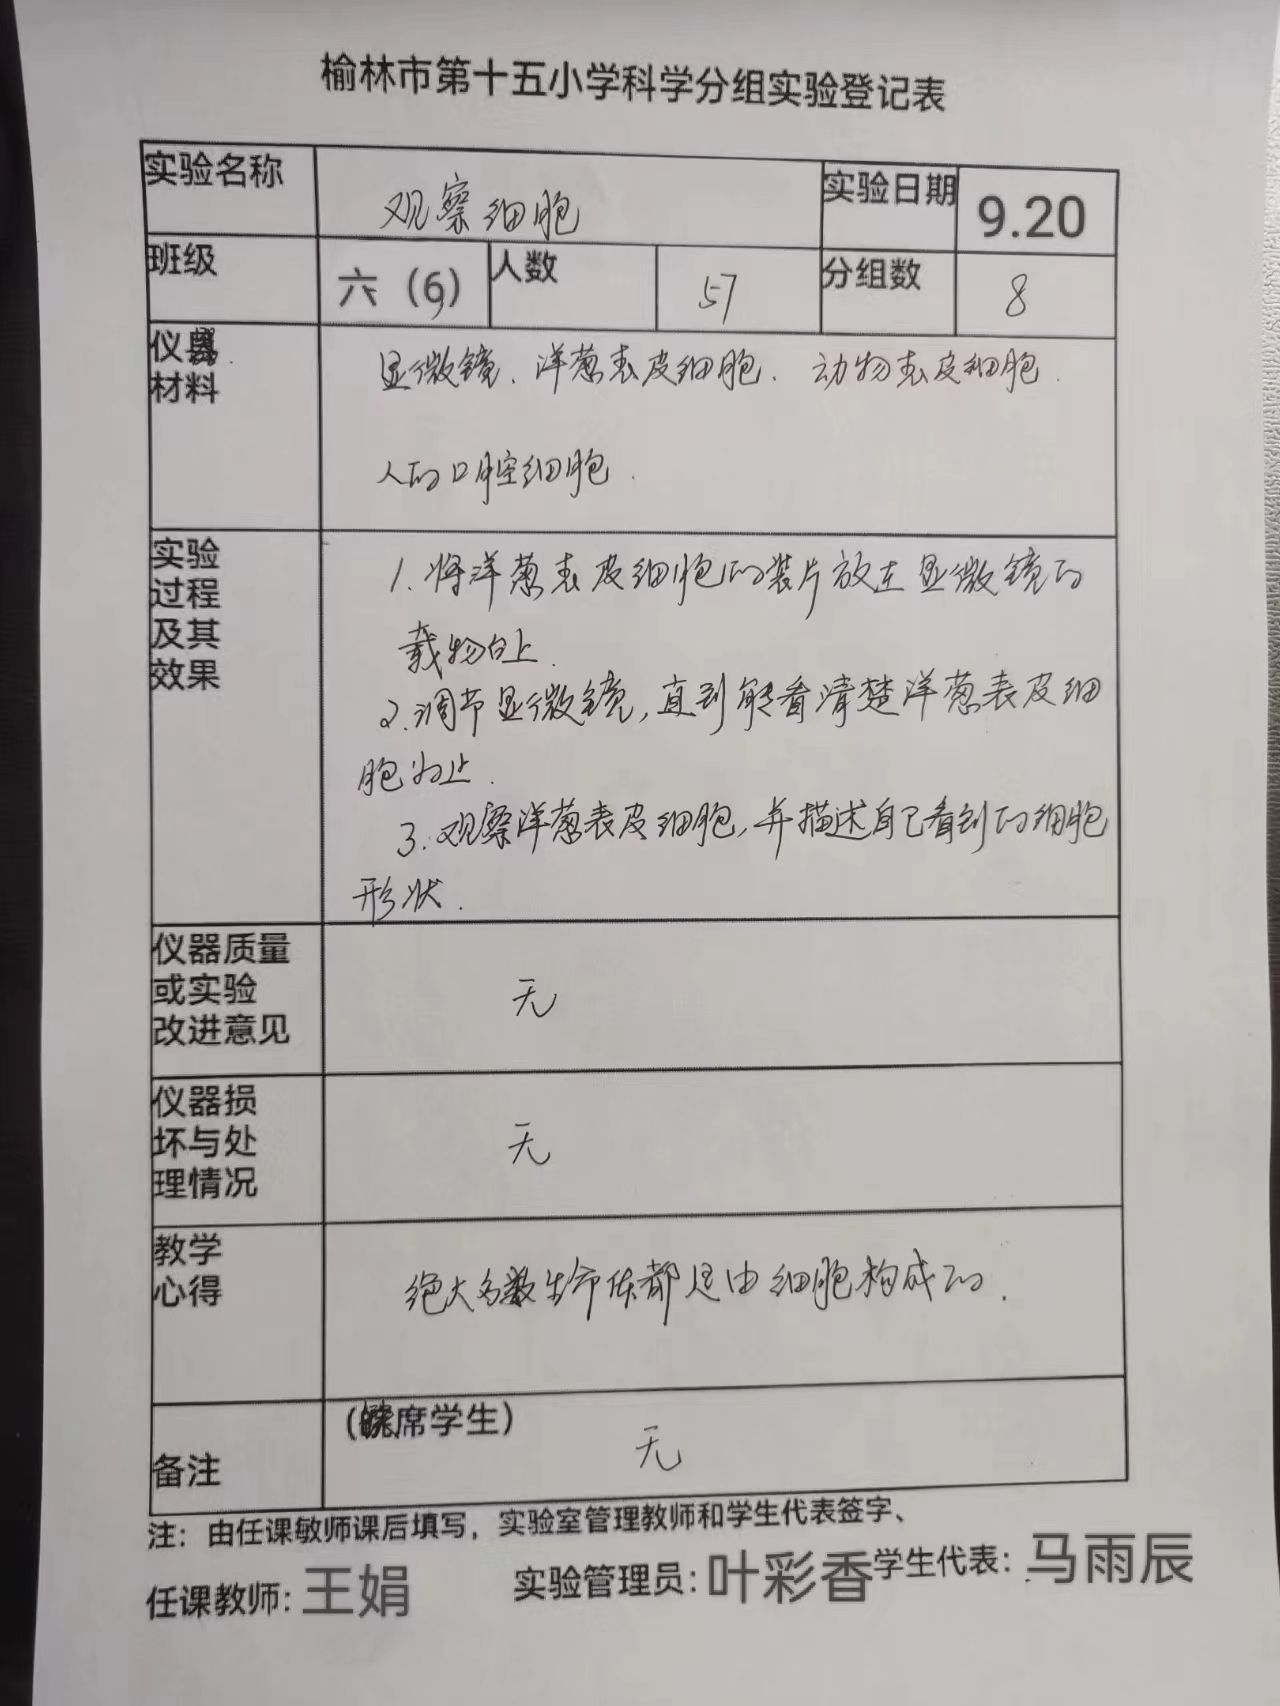 榆林市第十五小学科学分组实验登记表
实验名称 观察细胞 实验日期 9.20
班级 六（6） 人数 57 分组数 8
仪器
材料
显微镜、洋葱表皮细胞、动物表皮细胞.
人的口腔细胞.
实验
过程
及其
效果
1.将洋葱表皮细胞的装片放在显微镜的
载物台上.
2.调节显微镜,直到能看清楚洋葱表皮细
胞为止.
3.观察洋葱表皮细胞,并描述自己看到的细胞
形状.
仪器质量
或实验
改进意见
无
仪器损
坏与处
理情况
无
教学
心得
绝大多数生命体都是由细胞构成的.
备注
(缺席学生)
无
注：由任课教师课后填写，实验室管理教师和学生代表签字、
任课教师: 王娟 实验管理员: 叶彩香 学生代表: 马雨辰